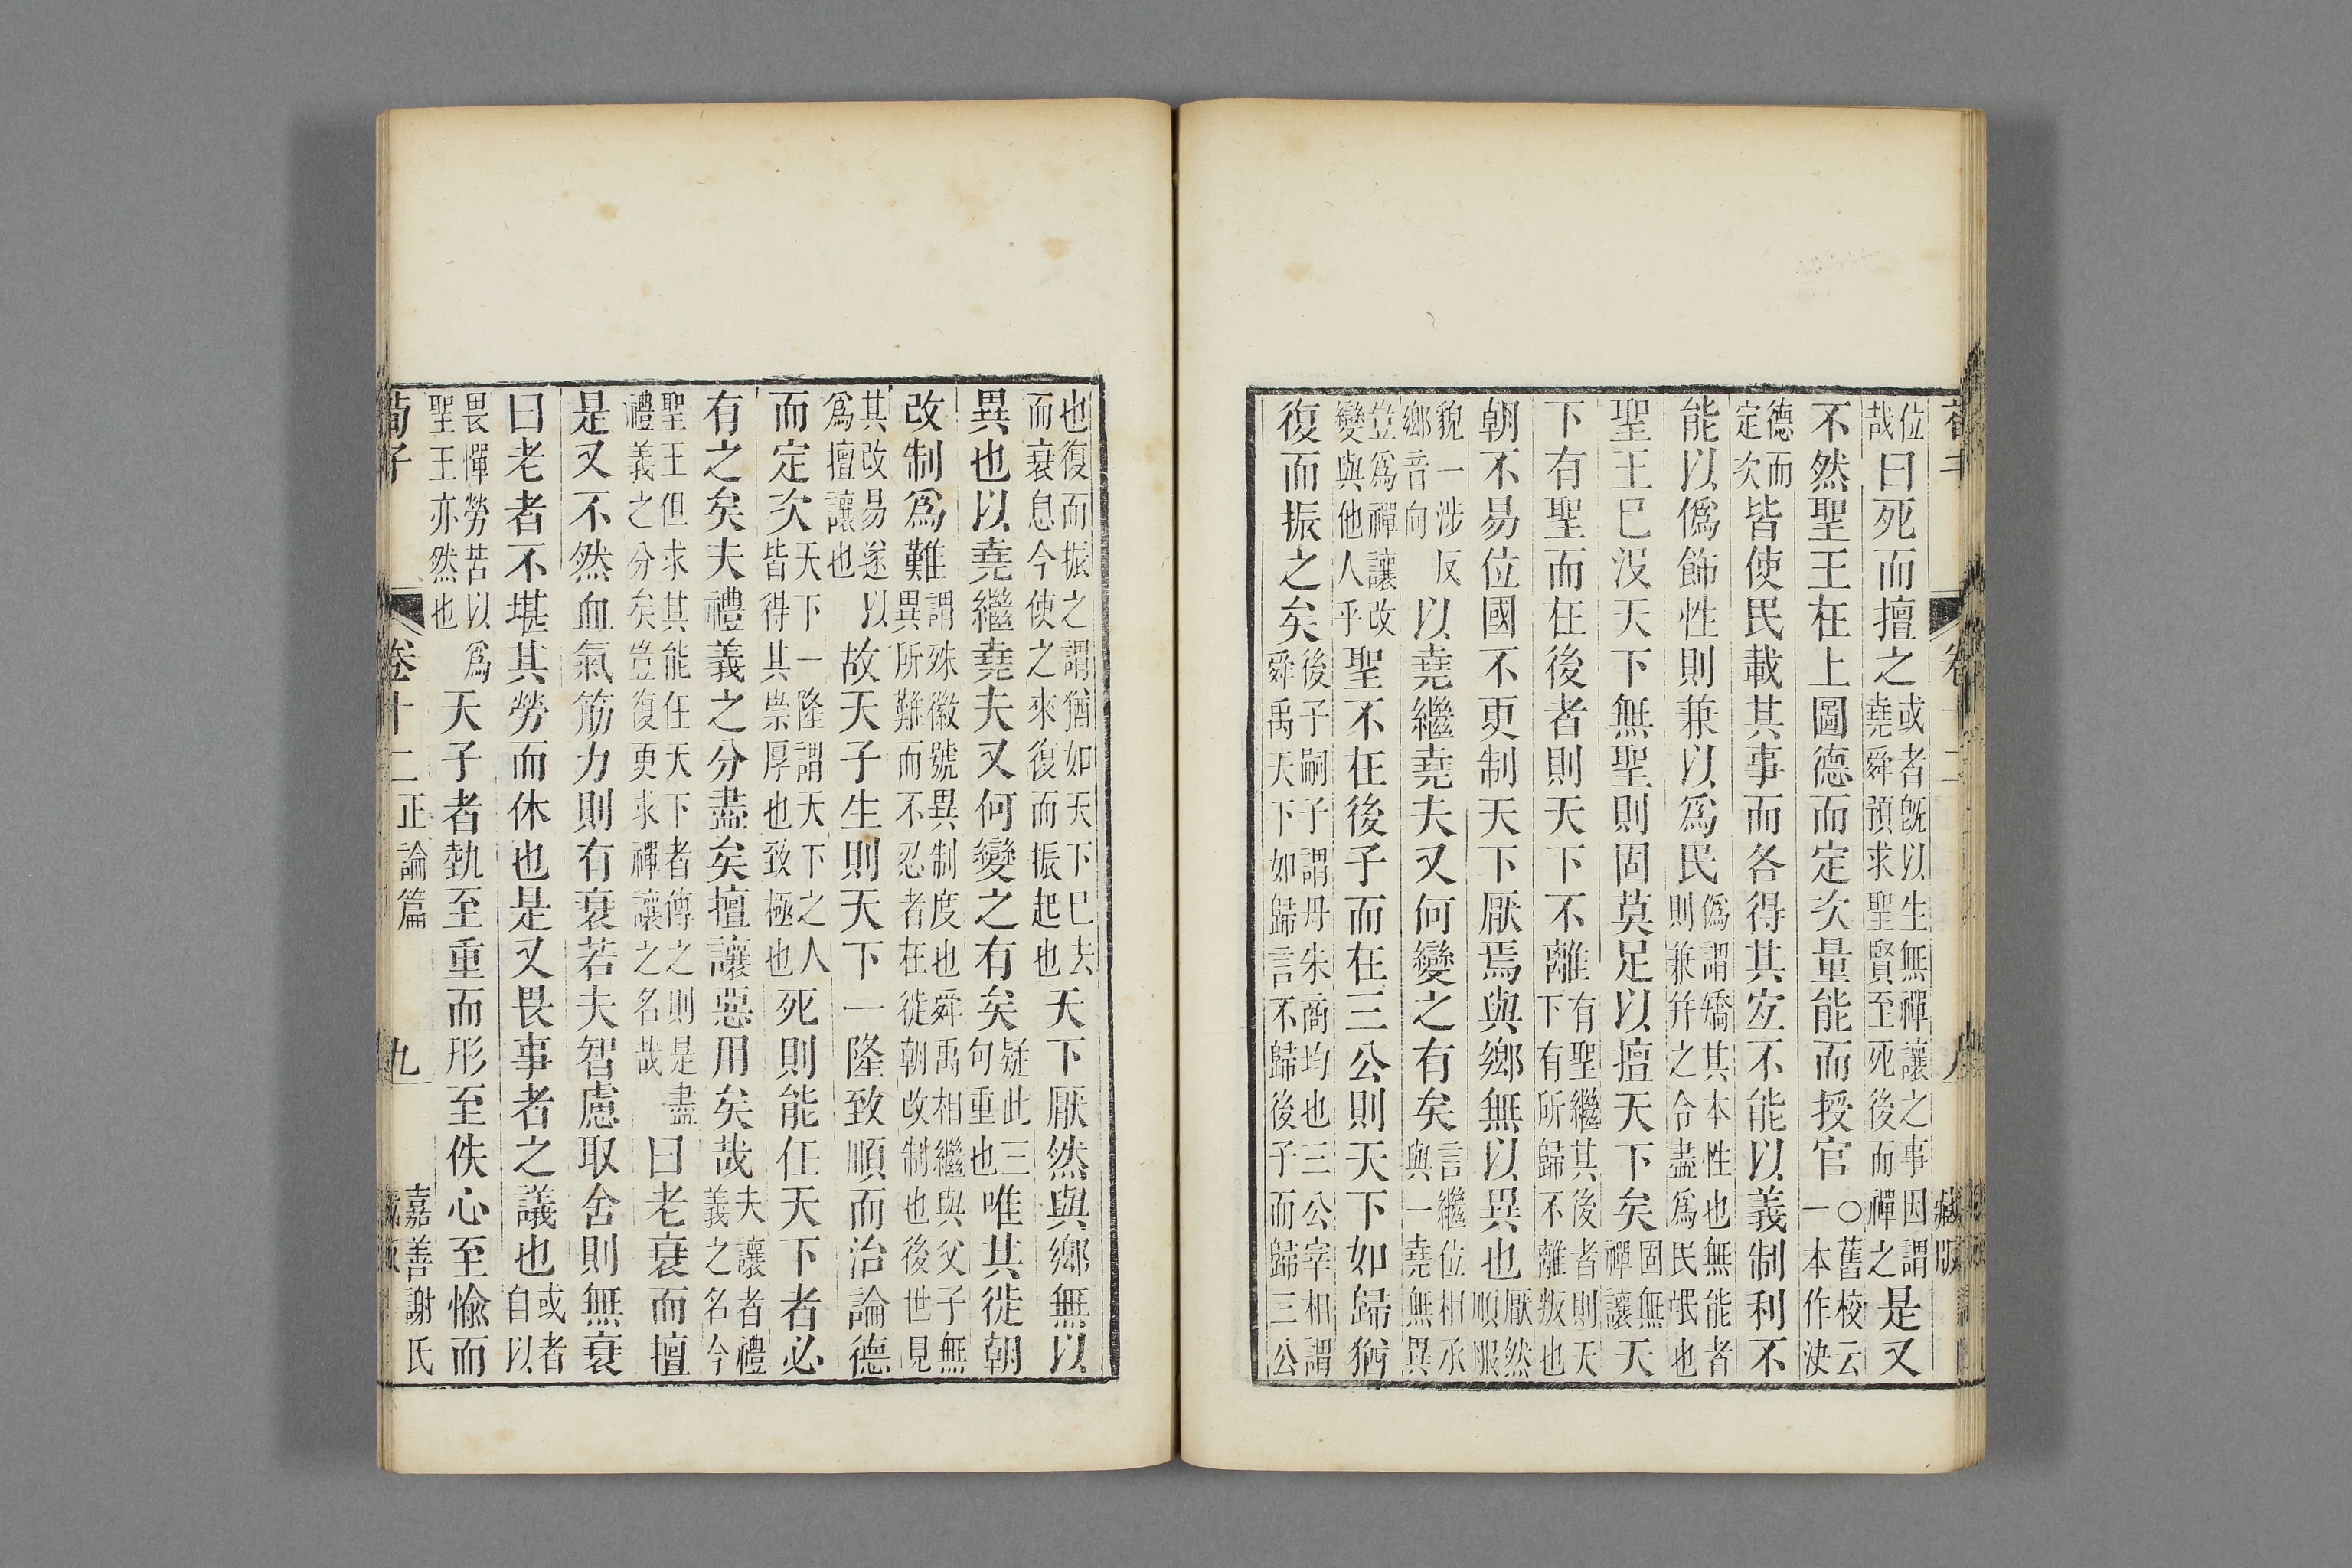 位哉曰死而擅之或者既以生無禪讓之事因謂堯舜預求聖賢至死後而禪之是又
不然聖王在上圖德而定次量能而授官〇舊校云一本作決
德而定次皆使民載其事而各得其宜不能以義制利不
能以僞飾性則兼以爲民僞謂矯其本性也無能者則兼幷之令盡爲民氓也
聖王已没天下無聖則固莫足以擅天下矣固無禪讓天
下有聖而在後者則天下不離有聖繼其後者則天下有所歸不離叛也
朝不易位國不更制天下厭焉與鄉無以異也厭然順服
貌一涉反鄉音向以堯繼堯夫又何變之有矣言繼位相承與一堯無異
豈爲禪讓改變與他人乎聖不在後子而在三公則天下如歸猶
復而振之矣後子嗣子謂丹朱商均也三公宰相謂舜禹天下如歸言不歸後子而歸三公
卷十二
藏版
也復而振之謂猶如天下已去而衰息今使之來復而振起也天下厭然與鄉無以
異也以堯繼堯夫又何變之有矣疑此三句重也唯其徙朝
改制爲難謂殊徽號異制度也舜禹相繼與父子無異所難而不忍者在徙朝改制也後世見
其改易遂以爲擅讓也故天子生則天下一隆致順而治論德
而定次天下一隆謂天下之人皆得其崇厚也致極也死則能任天下者必
有之矣夫禮義之分盡矣擅讓惡用矣哉夫讓者禮義之名今
聖王但求其能任天下者傳之則是盡禮義之分矣豈復更求禪讓之名哉曰老衰而擅
是又不然血氣筋力則有衰若夫智慮取舍則無衰
曰老者不堪其勞而休也是又畏事者之議也或者自以
畏憚勞苦以爲聖王亦然也天子者埶至重而形至佚心至愉而
荀子
卷十二 正論篇
九
嘉善謝氏